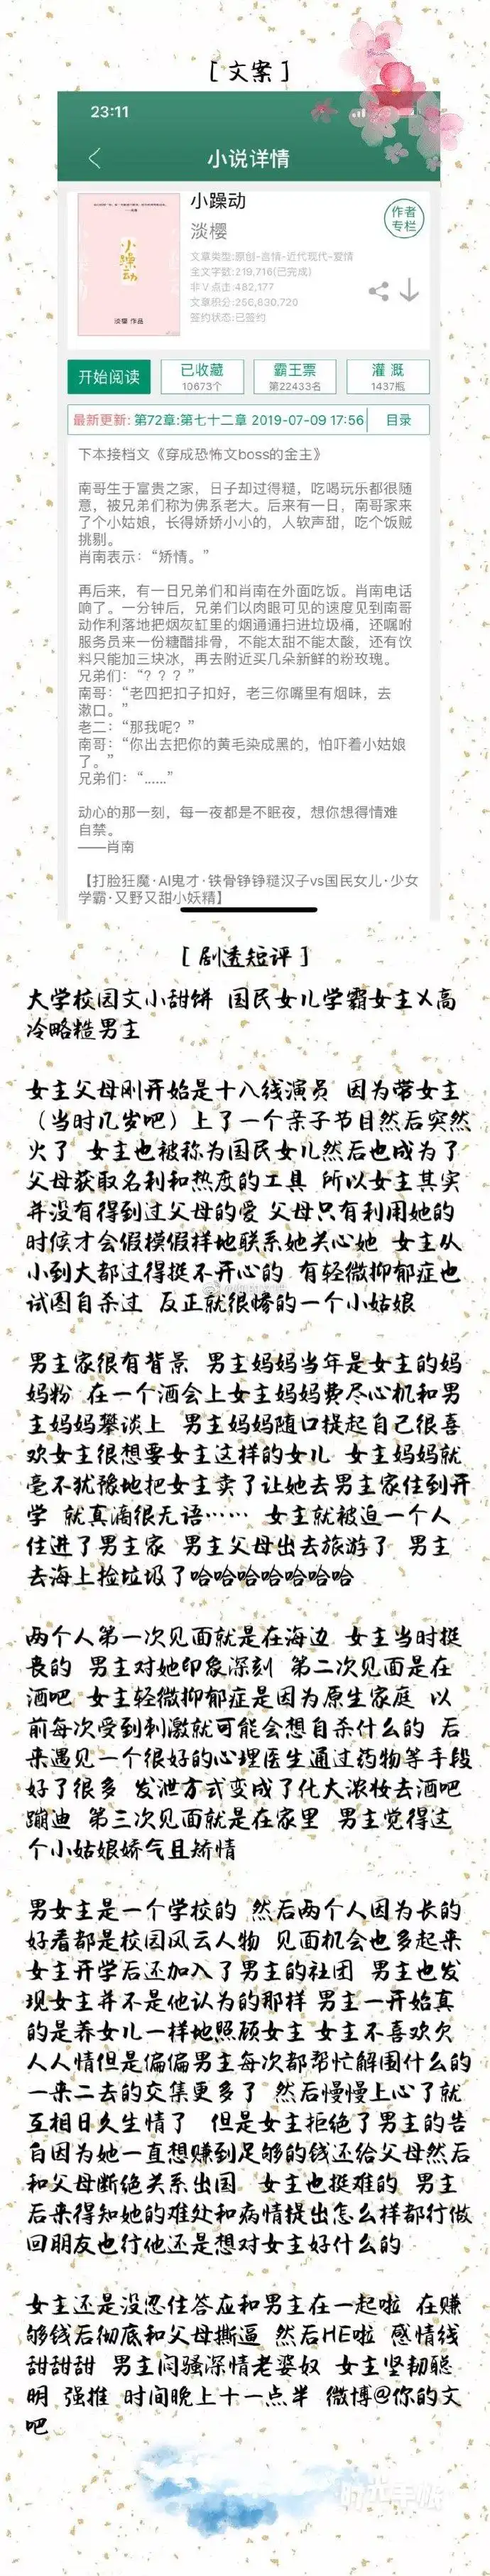 [文案]
23:11
小说详情
小躁动
淡樱
作者
专栏
文章类型:原创-言情-近代现代-爱情
全文字数:219,716(已完成)
非V点击:482,177
文章积分:256,830,720
签约状态:已签约
小躁动
淡樱 作品
开始阅读
已收藏
10673个
霸王票
第22433名
灌溉
1437瓶
最新更新: 第72章:第七十二章 2019-07-09 17:56
目录
下本接档文《穿成恐怖文boss的金主》
南哥生于富贵之家，日子却过得糙，吃喝玩乐都很随
意，被兄弟们称为佛系老大。后来有一日，南哥家来
了个小姑娘，长得娇娇小小的，人软声甜，吃个饭贼
挑剔。
肖南表示：“矫情。”
再后来，有一日兄弟们和肖南在外面吃饭。肖南电话
响了。一分钟后，兄弟们以肉眼可见的速度见到南哥
动作利落地把烟灰缸里的烟通通扫进垃圾桶，还嘱咐
服务员来一份糖醋排骨，不能太甜不能太酸，还有饮
料只能加三块冰，再去附近买几朵新鲜的粉玫瑰。
兄弟们：“？？？”
南哥：“老四把扣子扣好，老三你嘴里有烟味，去
漱口。”
老二：“那我呢？”
南哥：“你出去把你的黄毛染成黑的，怕吓着小姑娘
了。”
兄弟们：“……”
动心的那一刻，每一夜都是不眠夜，想你想得情难
自禁。
——肖南
【打脸狂魔·AI鬼才·铁骨铮铮糙汉子vs国民女儿·少女
学霸·又野又甜小妖精】
[剧透短评]
大学校园文小甜饼 国民女儿学霸女主X高
冷略糙男主
女主父母刚开始是十八线演员 因为带女主
（当时几岁吧）上了一个亲子节目然后突然
火了 女主也被称为国民女儿然后也成为了
父母获取名利和热度的工具 所以女主其实
并没有得到过父母的爱 父母只有利用她的
时候才会假模假样地联系她关心她 女主从
小到大都过得挺不开心的 有轻微抑郁症也
试图自杀过 反正就很惨的一个小姑娘
男主家很有背景 男主妈妈当年是女主的妈
妈粉 在一个酒会上女主妈妈费尽心机和男
主妈妈攀谈上 男主妈妈随口提起自己很喜
欢女主很想要女主这样的女儿 女主妈妈就
毫不犹豫地把女主卖了让她去男主家住到开
学 就真滴很无语…… 女主就被迫一个人
住进了男主家 男主父母出去旅游了 男主
去海上捡垃圾了哈哈哈哈哈哈哈哈
两个人第一次见面就是在海边 女主当时挺
丧的 男主对她印象深刻 第二次见面是在
酒吧 女主轻微抑郁症是因为原生家庭 以
前每次受到刺激就可能会想自杀什么的 后
来遇见一个很好的心理医生通过药物等手段
好了很多 发泄方式变成了化大浓妆去酒吧
蹦迪 第三次见面就是在家里 男主觉得这
个小姑娘娇气且矫情
男女主是一个学校的 然后两个人因为长的
好看都是校园风云人物 见面机会也多起来
女主开学后还加入了男主的社团 男主也发
现女主并不是他认为的那样 男主一开始真
的是养女儿一样地照顾女主 女主不喜欢欠
人人情但是偏偏男主每次都帮忙解围什么的
一来二去的交集更多了 然后慢慢上心了就
互相日久生情了 但是女主拒绝了男主的告
白因为她一直想赚到足够的钱还给父母然后
和父母断绝关系出国 女主也挺难的 男主
后来得知她的难处和病情提出怎么样都行做
回朋友也行他还是想对女主好什么的
女主还是没忍住答应和男主在一起啦 在赚
够钱后彻底和父母撕逼 然后HE啦 感情线
甜甜甜 男主闷骚深情老婆奴 女主坚韧聪
明 强推 时间晚上十一点半 微博@你的文
吧
时光手帐